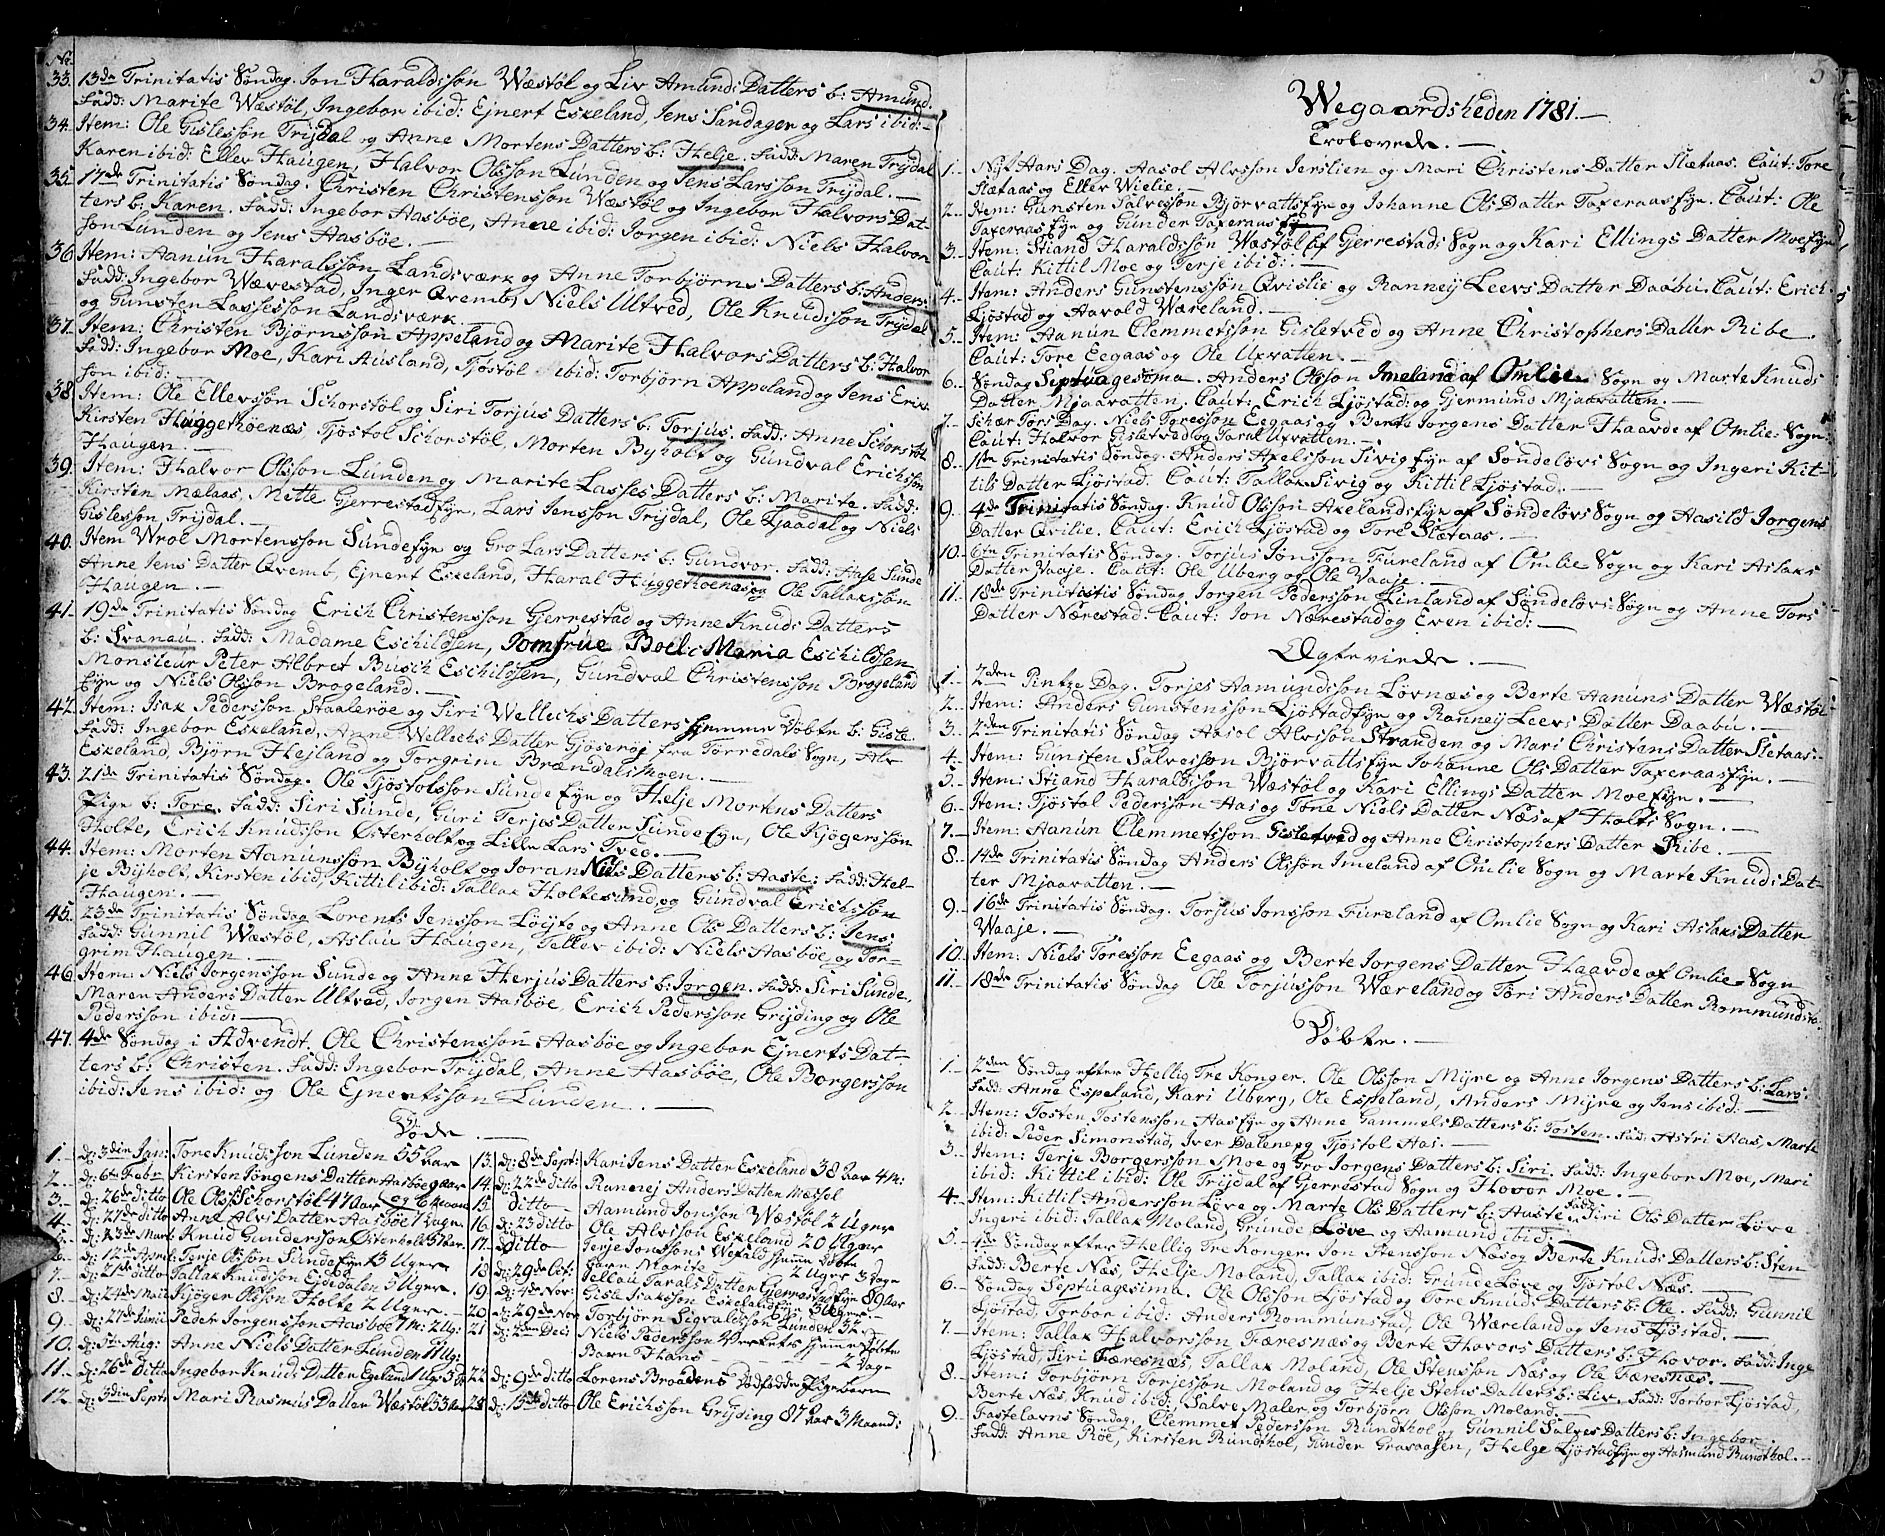 No
33. 13de Trinitatis Søndag. Jon Haraldssøn Wæstøl og Liv Amunds Datters b: Amund.
Fadd: Marite Wæstøl, Ingebor ibid: Ejnert Eskeland, Jens Sandager og Lars ibid:
34. Item: Ole Gislessøn Trijdal og Anne Mortens Datters b: Helje. Fadd: Maren Trijdal
Karen ibid: Ellev Haugen, Halvor Olssøn Lunden og Jens Larssøn Trijdal.
35. 17de Trinitatis Søndag. Christen Christenssøn Wæstøl og Ingebor Halvors Dat-
ters b: Karen. Fadd: Ingebor Aasbøe, Anne ibid: Jorgen ibid: Niels Halvor
søn Lunden og Jens Aasbøe.
36 Item: Aanun Haralssøn Landsværk og Anne Torbjørns Datters b: Anders
Fadd: Ingebor Wærestad, Inger Qvemb, Niels Ultved, Ole Knudssøn Trijdal
og Gunsten Lassessøn Landsværk.
37. Item: Christen Bjørnssøn Appeland og Marite Halvors Datters b: Halvor
Fadd: Ingebor Moe, Kari Ausland, Tjøstøl ibid: Torbjørn Appeland og Jens Erik
søn ibid:
38 Item: Ole Ellevssøn Schorstøl og Siri Torjus Datters b: Torjus. Fadd: Anne Schorstøl
Kirsten Huggethoenæs Tjøstol Schorstøl, Morten Byholt og Gundval Erichssøn
Haugen.
39. Item: Halvor Olssøn Lunden og Marite Lasses Datters b: Marite. Fadd:
Kirsten Mælaas, Mitte Gjerrestad fyn, Lars Jenssøn Trijdal, Ole Ljaadal og Niels
Gislessøn Trijdal.
40. Item Wroe Mortenssøn Sunde fyn og Gro Lars Datters b: Gundvor. Fadd: Aase Sunde
Anne Jens Datter Qvemb, Ejnert Eskeland, Haral Huggethoenæs og Ole Tallakssøn
Haugen.
41. 19de Trinitatis Søndag Erich Christenssøn Gjerrestad og Anne Knuds Datters
b: Svanau. Fadd: Madame Eschildsen, Jomfrue Boel Maria Eschildsen
Monsieur Peter Albret Busch Eschildsen, Gundval Christenssøn Brogeland
fyn og Niels Olssøn Brogeland.
42. Item: Isak Pederssøn Staalerøe og Siri Wellechs Datters hjemme døbte b: Gisle.
Fadd: Ingebor Eskeland, Anne Wellechs Datter Gjøserøe fra Torredals Sogn, Alv
Eskeland, Bjørn Hejland og Torgrim Brændalsmoen.
43. 21de Trinitatis Søndag. Ole Tjøstolssøn Sunde fyn og Helje Morkus Datters
Pige b: Tore. Fadd: Siri Sunde, Guri Terjes Datter Sunde fyn, Ole Kjøgerssøn
Holte, Erich Knudssøn Østerholt og Lille Lars Tvet.
44. Item: Morten Aanunssøn Byholt og Joran Niels Datters b: Aaste: Fadd: Hel-
je Byholt, Kirsten ibid, Kittil ibid: Tallak Holtesund og Gundval Erichssøn
Haugen.
45. 23de Trinitatis Søndag Lorents Jenssøn Løyte og Anne Ols Datters b: Jens
Fadd: Gunnil Wæstøl, Aslau Haugen, Tellev ibid: Niels Aasbøe, og Tor-
grim Haugen.
46. Item: Niels Jorgenssøn Sunde og Anne Therjus Datters b: Jorgen. Fadd: Siri Sunde,
Maren Anders Datter Ultved, Jorgen Aasbøe, Erich Pederssøn Grijding og Ole
Pederssøn ibid:
47. 4de Søndag i Advendt. Ole Christenssøn Aasbøe og Ingebor Ejnerts Dat-
ters b: Christen. Fadd: Ingebor Trijdal, Anne Aasbøe, Ole Borgerssøn
ibid: Jens ibid: og Ole Ejnertssøn Lunden.
Døde.
1. d: 3die Jan: Tore Knudssøn Lunden 55 Aar
2. d: 6te Febr Kirsten Jörgens Datter Aasbøe 9 Aar
3. d: 26de ditto Ole Olssøn Schorstøl 47 Aar og 6 Maan:
4. d: 27de ditto Anne Alvs Datter Aasbøe 7 Dager
5. d: 23de Marts Knud Gunderssøn Østerholt 57 Aar.
6. d: 12de April Terje Olssøn Sunde fyn 13 Uger
7. d: 27de ditto Tallak Knudssøn Eidedalen 3 Uger.
8. d: 24de Maii Kjöger Olssøn Holte 2 Uger.
9. d: 27de Junii Peder Jorgenssøn Aasbøe 7 M: 2 Ug:
10. d: 5te Aug: Anne Niels Datter Lunden 11 Ug:
11. d: 26de Ditto Ingebor Knuds Datter Egeland 1 Uge 3 D
12. d: 3die Septr Mari Rasmus Datter Wæstøl 53 Aar
13. d: 8de Sept: Kari Jens Datter Eskeland 38 Aar 4 M:
14. d: 22de ditto Rannej Anders Datter Wæstøl
15. ditto Aamund Jonssøn Wæstøl 2 Uger
16. d: 23 ditto Ole Alvssøn Eskeland 20 Uger
17. ditto Terje Jonssøns Wefald hjemme døbte
Barn Marite 2 Uger 3 Dage
18 d: 29de Oct: Tellau Tarals Datter Gjerrestad fyn 89 Aar
19. d: 4de Nov: Gisle Isakssøn Eskeland fyn 3 Uger
20. d: 29de Nov Torbjørn Sigvaldssøn Lunden 32
21. d: 2den Decs Niels Pederssøn Verkets hjemme døbte
Barn Hans 2 Dage
22. d: 9de ditto Lorens Broadens dødfødde Pigebarn
23. d: 13de ditto Ole Erichssøn Grijding 87 Aar 3 Maand:
5
Wegaardsheden 1781.
Trolovede.
1. Nyt Aars Dag. Aasol Alvssøn Jerslien og Mari Christens Datter Slætaas. Caut: Tore
Slætaas og Ellev Wielie.
2. Item: Gunsten Salvessøn Bjørvatts fyn og Johanne Ols Datter Taxeraas fyn. Caut: Ole
Taxeraas fyn og Gunder Taxeraas fyn
3. Item: Stiand Haraldssøn Wæstøl af Gjerrestads Sogn og Kari Ellings Datter Moe fyn
Caut: Kittil Moe og Terje ibid:
4. Item: Anders Gunstenssøn Qvislie og Rannej Leevs Datter Daabu. Caut: Erich
Ljøstad og Aavold Wæreland.
5. Item: Aanun Clemmetssøn Gisletved og Anne Christophers Datter Ribe.
Caut: Tore Eegaas og Ole Uxvatten.
6. Søndag Septuagesoma. Anders Olssøn Imeland af Omlie Sogn og Marte Knuds
Datter Mjaavatten. Caut: Erich Ljøstad og Gjermund Mjaavatten.
7. Schær Tors Dag. Niels Toressøn Eegaas og Berte Jorgens Datter Haavde af Omlie Sogn.
Caut: Halvor Gisletved og Taral Uxvatten.
8. 1ste Trinitatis Søndag. Anders Axelssøn Sivig fyn af Søndeløvs Sogn og Ingeri Kit-
tils Datter Ljøstad. Caut: Tallak Sivig og Kittil Ljøstad.
9. 4de Trinitatis Søndag. Knud Olssøn Axelands fyn af Søndeløvs Sogn og Aasild Jorgens
Datter Qvilie. Caut: Erich Ljøstad og Tore Slætaas.
10. 6te Trinitatis Søndag. Torjus Jonssøn Fureland af Omlie Sogn og Kari Aslaks
Datter Vaaje. Caut: Ole Uberg og Ole Vaaje.
11. 18de Trinitatis Søndag Jorgen Pederssøn Linland af Søndeløvs Sogn og Anne Tors
Datter Nærestad. Caut: Jon Nærestad og Even ibid:
Ægteviede.
1. 2den Pintze Dag. Torjes Aamundssøn Løvnæs og Berte Aanuns Datter Wæstøl
2. Item: Anders Gunstenssøn Ljøstad fyn og Rannej Leevs Datter Daabu.
3. 2den Trinitatis Søndag Aasol Alvssøn Stranden og Mari Christens Datter Sletaas.
4. Item: Gunsten Salvessøn Bjørvatts fyn Johanne Ols Datter Taxeraas fyn.
5. Item: Stiand Haraldssøn Wæstøl og Kari Ellings Datter Moe fyn.
6. Item: Tjøstøl Pederssøn Aas og Tone Niels Datter Næs af Holts Sogn.
7. Item: Aanun Clemmetssøn Gisletved og Anne Christophers Datter Ribe.
8. 14de Trinitatis Søndag Anders Olssøn Imeland af Omlie Sogn og Marte Knuds Dat-
ter Mjaavatten.
9. 16de Trinitatis Søndag. Torjus Jonssøn Fureland af Omlie Sogn og Kari Aslaks Datter
Waaje.
10. Item: Niels Toressøn Eegaas og Berte Jorgens Datter Haavde af Omlie Sogn
11. 18de Trinitatis Søndag Ole Torjussøn Wæreland og Tori Anders Datter Rommundst:
Døbte.
1. 2den Søndag efter Hellig Tre Konger. Ole Olssøn Mijre og Anne Jorgens Datters b: Lars.
Fadd: Anne Espeland, Kari Uberg, Ole Espeland, Anders Mijre og Jens ibid:
2. Item: Tosten Tostenssøn Aas fyn og Anne Gammels Datters b: Tosten. Fad: Astri Aas, Marte
ibid: Peder Simonstad, Iver Dalen og Tjøstol Aas.
3. Item: Terje Borgerssøn Moe og Gro Jorgens Datters b: Siri. Fadd: Ingebor Moe, Mari
ibid: Kittil ibid: Ole Trijdal af Gjerrestad Sogn og Hovor Moe.
4. Item: Kittil Anderssøn Løve og Marte Ols Datters b: Aaste Fadd: Siri Ols Datter Løve
Ingeri ibid: Tallak Moland, Grunde Løve og Aamund ibid:
5. 4de Søndag efter Hellig Tre Konger. Jon Stenssøn Næs og Berte Knuds Datters b: Sten
Fadd: Berte Næs, Helje Moland, Tallak ibid: Grunde Løve og Tjøstøl Næs.
6. Søndag Septuagesima. Ole Olssøn Ljøstad og Tore Knuds Datters b: Ole. Fadd: Gunnil
Ljøstad, Torbor ibid: Anders Rommunstad, Ole Wæreland og Jens Ljøstad.
7. Item: Tallak Halvorssøn Færesnæs og Berte Hovors Datters b: Hovor. Fadd: Inge
Ljøstad, Siri Færesnæs, Tallak Moland, Ole Stenssøn Næs og Ole Færesnæs.
8. Item: Torbjørn Torjessøn Moland og Helje Stens Datters b: Liv. Fadd: Torbor Ljøstad,
Berte Næs, Knud ibid: Salve Maler og Torbjørn Olssøn Moland.
9. Fastelavns Søndag. Clemmet Pederssøn Rundthol og Gunnil Salves Datters b: Ingebor
Fadd: Anne Røe, Kirsten Rundthol, Gunder Grasaasen, Helge Ljøstad fyn og Aasmund Rundthol.